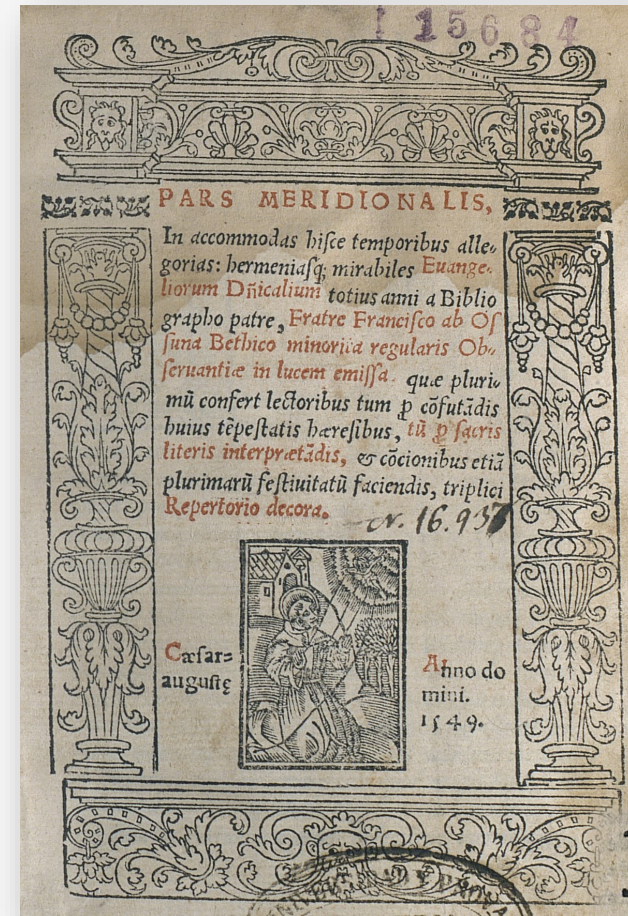 1 15684
PARS MERIDIONALIS,
In accommodas hiſce temporibus alle-
gorias: hermeniaſq; mirabiles Euange-
liorum Dñicalium totius anni a Biblio
grapho patre, Fratre Franciſco ab Oſ
ſuna Bethico minorita regularis Ob-
ſeruantiæ in lucem emiſſa. quæ pluri-
mū confert lectoribus tum ꝑ cōfutādis
huius tēpeſtatis hæreſibus, tū ꝑ ſacris
literis interprætādis, & cōcionibus etiā
plurimarū feſtiuitatū faciendis, triplici
Repertorio decora.
-cr. 16.937
Cæſar=
auguſtę
Anno do
mini.
1549.